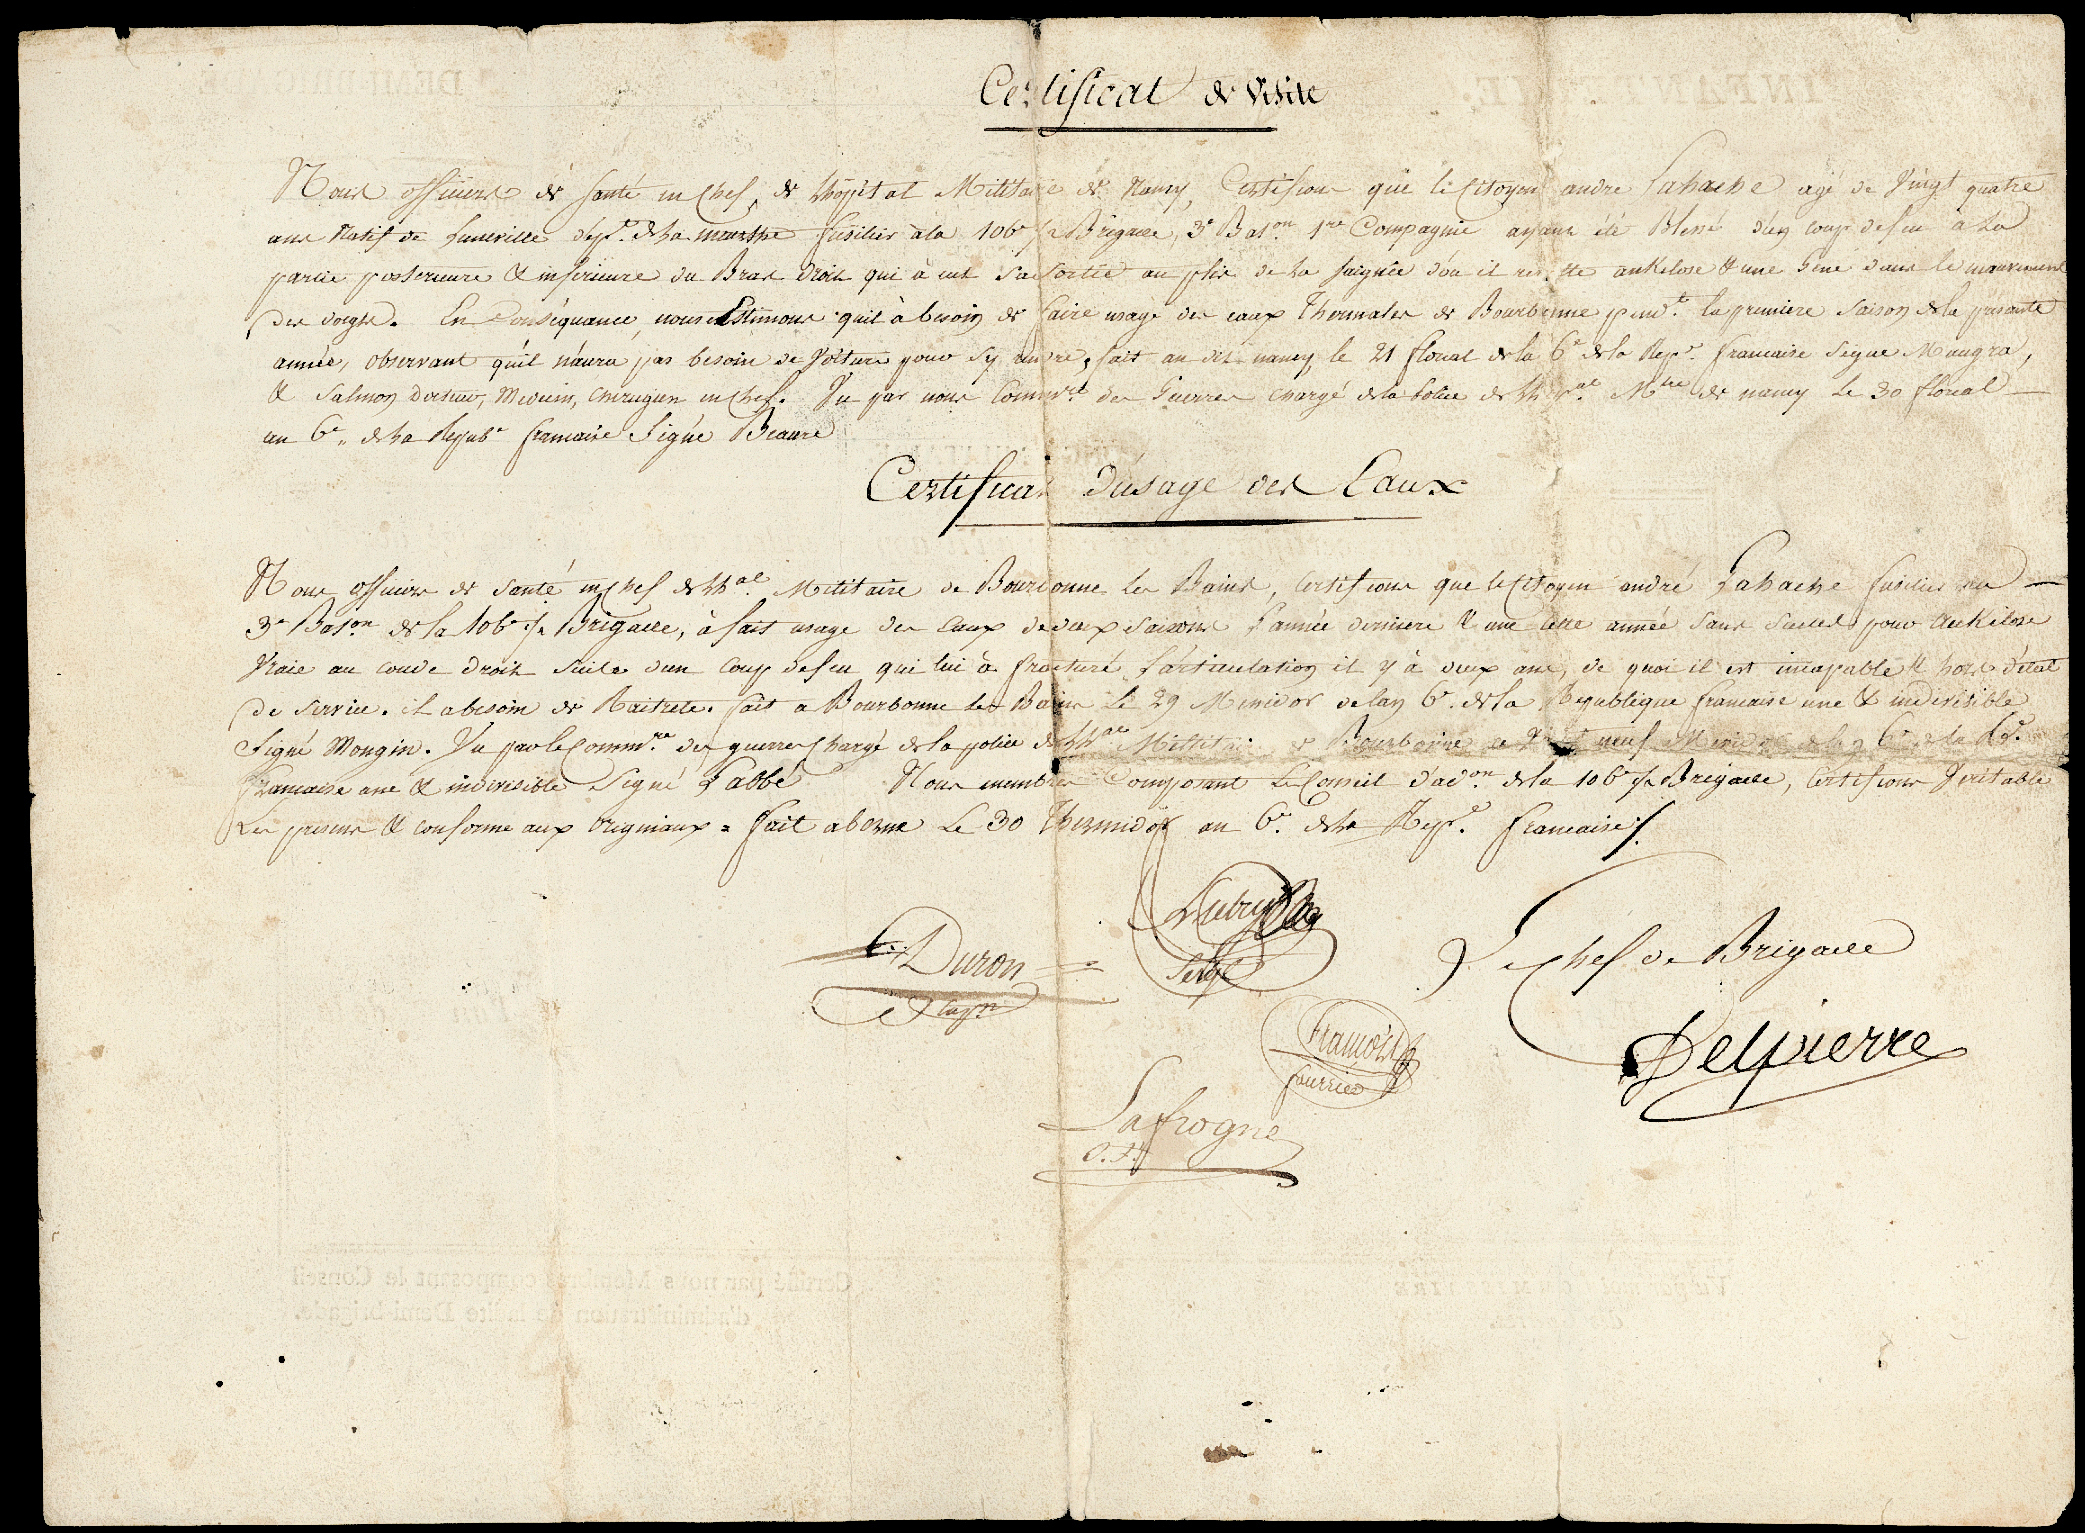 Certificat de Visite
Nous officiers de santé en chef, de Lhôpital Militaire de Nancy, Certifions que le Citoyen andre Lahache agé de Vingt quatre
ans Natif de Luneville dept. de la meurthe fusilier ala 106e 1/2 Brigade, 3e Baton 1re Compagnie ayant été Blessé d'un coup de feu à la
partie posterieure & inferieure du Bras droit qui à eut sa sortie au plis de la saignée d'ou il resulte ankilose & une Gene dans le mouvement
des doigts. En Conséquance nous Estimons quil à besoin de faire usage des eaux Thermales de Bourbonne pendt. la premiere saison de la presente
année, observant quil n'aura pas besoin de Voiture pour sy rendre, fait au dit nancy le 21 floreal de la 6e de la Repe. francaise signe Maugra,
& Salmon docteur, Medecin, chirugien en chef. Vu par nous Commre. des Guerres chargé de la Police de Lh al. Mre de nancy Le 30 floreal —
an 6e. de la Repube francaise Signé Beaure
Certificat d'usage des Eaux
Nous officiers de santé en chef de Lhal. Militaire de Bourbonne les Bains, Certifions que le Citoyen andré Lahache fusilier au —
3e Baton de la 106e 1/2 Brigade, à fait usage des Eaux de deux saisons l'année derniere & une cette année sans succes pour Ankilose
Vraie au coude droit suite d'un coup de feu qui lui à fracturé l'articulation il y à deux ans, de quoi il est incapable & hors d'état
de service. il a besoin de Raitrete. fait a Bourbonne les Bains Le 29 Messidor de lan 6e. de la Republique francaise une & indivisible
Signé Mongin. Vu par le Commre. des guerres Chargé de la police de Lhal Militaire de Bourbonne le Vingt neuf Messidor de lan 6e de la Re.
francaise une & indivisible Signé Labbé Nous membres Composant Le Conseil d'adon. de la 106e 1/2 Brigade, Certifions Veritable
Les presens & conforme aux Originiaux = fait a borne Le 30 Thermidor an 6e. de la Repe. francaise ./.
Aubry
Sergt
Duron
Capne
Le chef de Brigade
François
fourrier
Delpierre
Lafrogne